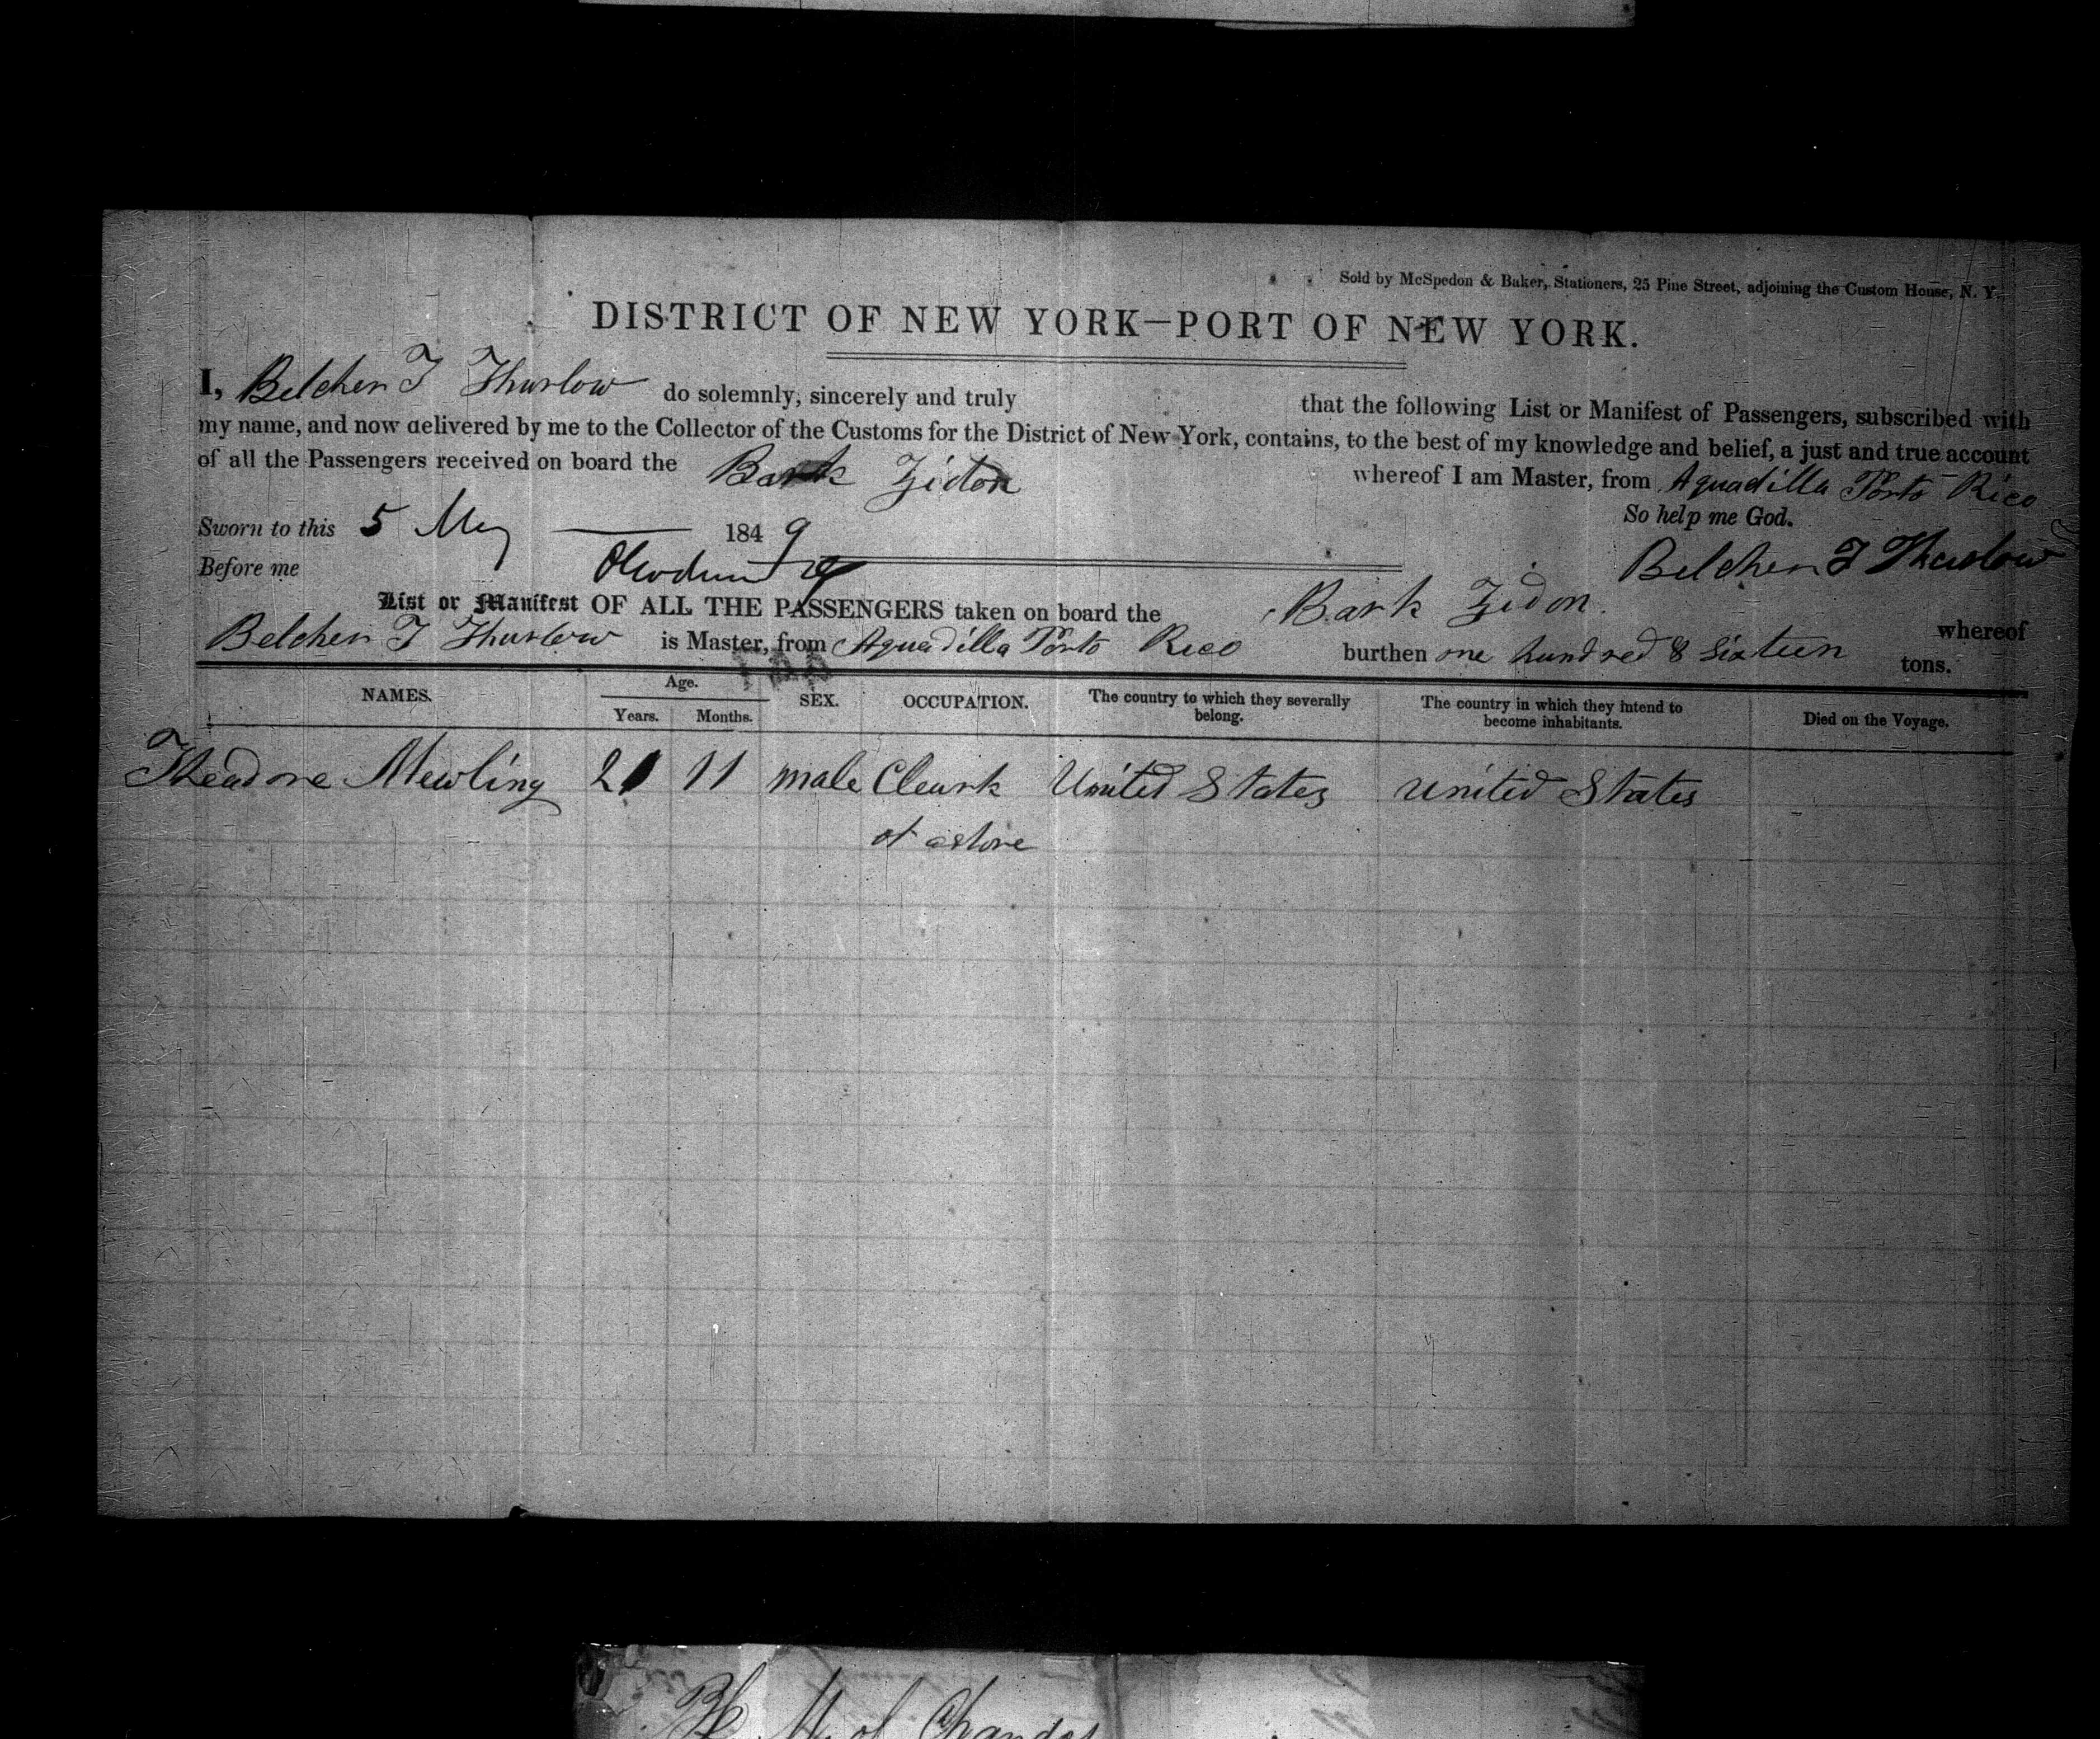 Sold by McSpedon & Baker, Stationers, 25 Pine Street, adjoining the Custom House, N. Y.
DISTRICT OF NEW YORK—PORT OF NEW YORK.
I, Belcher T Thurlow do solemnly, sincerely and truly that the following List or Manifest of Passengers, subscribed with
my name, and now delivered by me to the Collector of the Customs for the District of New York, contains, to the best of my knowledge and belief, a just and true account
of all the Passengers received on board the Bark Zidon whereof I am Master, from Aguadilla Porto Rico
So help me God.
Sworn to this 5 May 1849
Belcher T Thurlow
Before me
List or Manifest OF ALL THE PASSENGERS taken on board the Bark Zidon. whereof
Belcher T Thurlow is Master, from Aguadilla Porto Rico burthen one hundred & sixteen tons.
NAMES. Age. SEX. OCCUPATION. The country to which they severally belong. The country in which they intend to become inhabitants. Died on the Voyage.
Years. Months.
Theadore Mewling 21 11 male Cleurk United States United States
of a store
of